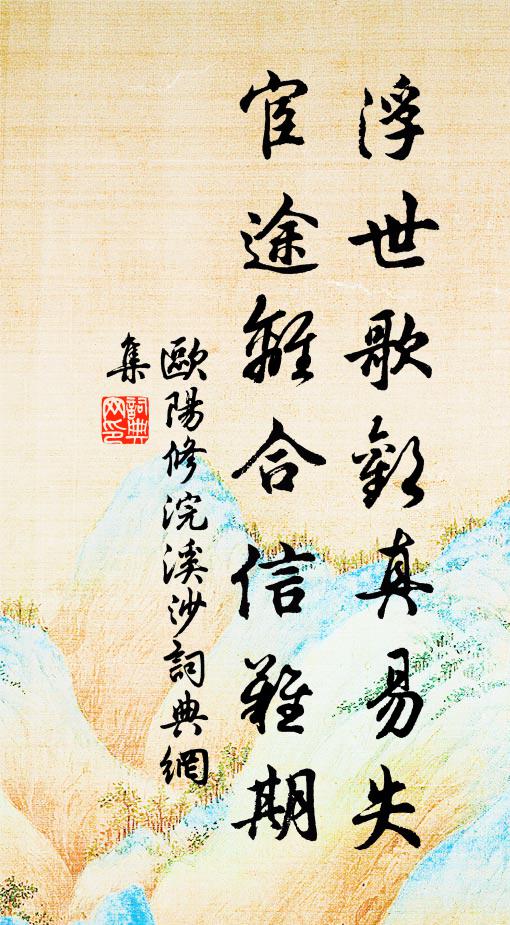 浮世歌歡真易失
宦途離合信難期
歐陽修浣溪沙詞典網
集
詞典網印